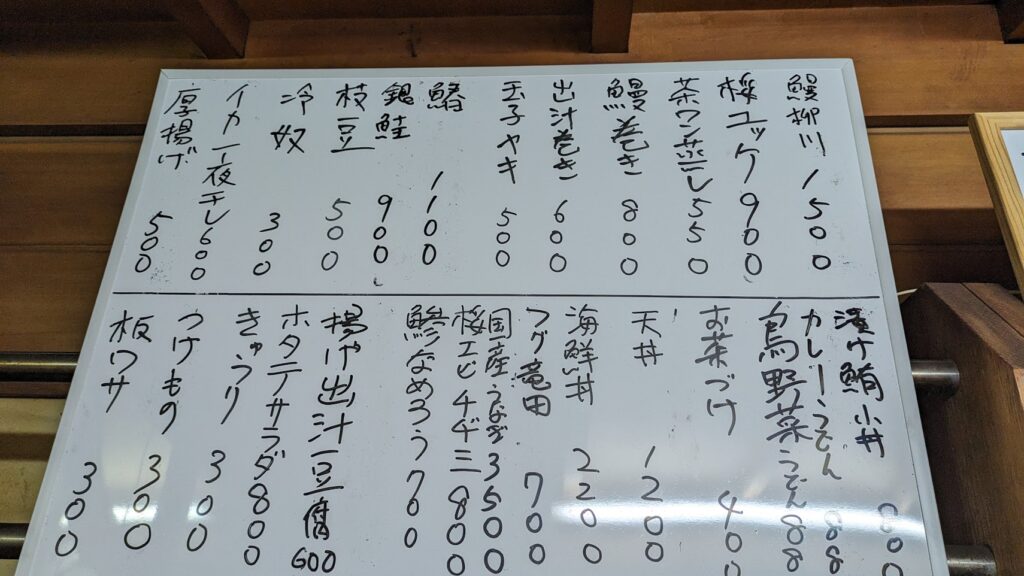 鰻柳川 1500
桜ユッケ 900
茶ワン蒸し 550
鰻巻き 800
出汁巻き 600
玉子ヤキ 500
鰆 1100
銀鮭 900
枝豆 500
冷奴 300
イカ一夜干し 600
厚揚げ 500
漬け鮪小丼 800
カレーうどん 88
烏野菜うどん 88
お茶づけ 400
天丼 1200
海鮮丼 2200
フグ竜田 700
国産うなぎ 3500
桜エビチヂミ 800
鯵なめろう 700
揚げ出汁豆腐 600
ホタテサラダ 800
きゅうり 300
つけもの 300
板ワサ 300